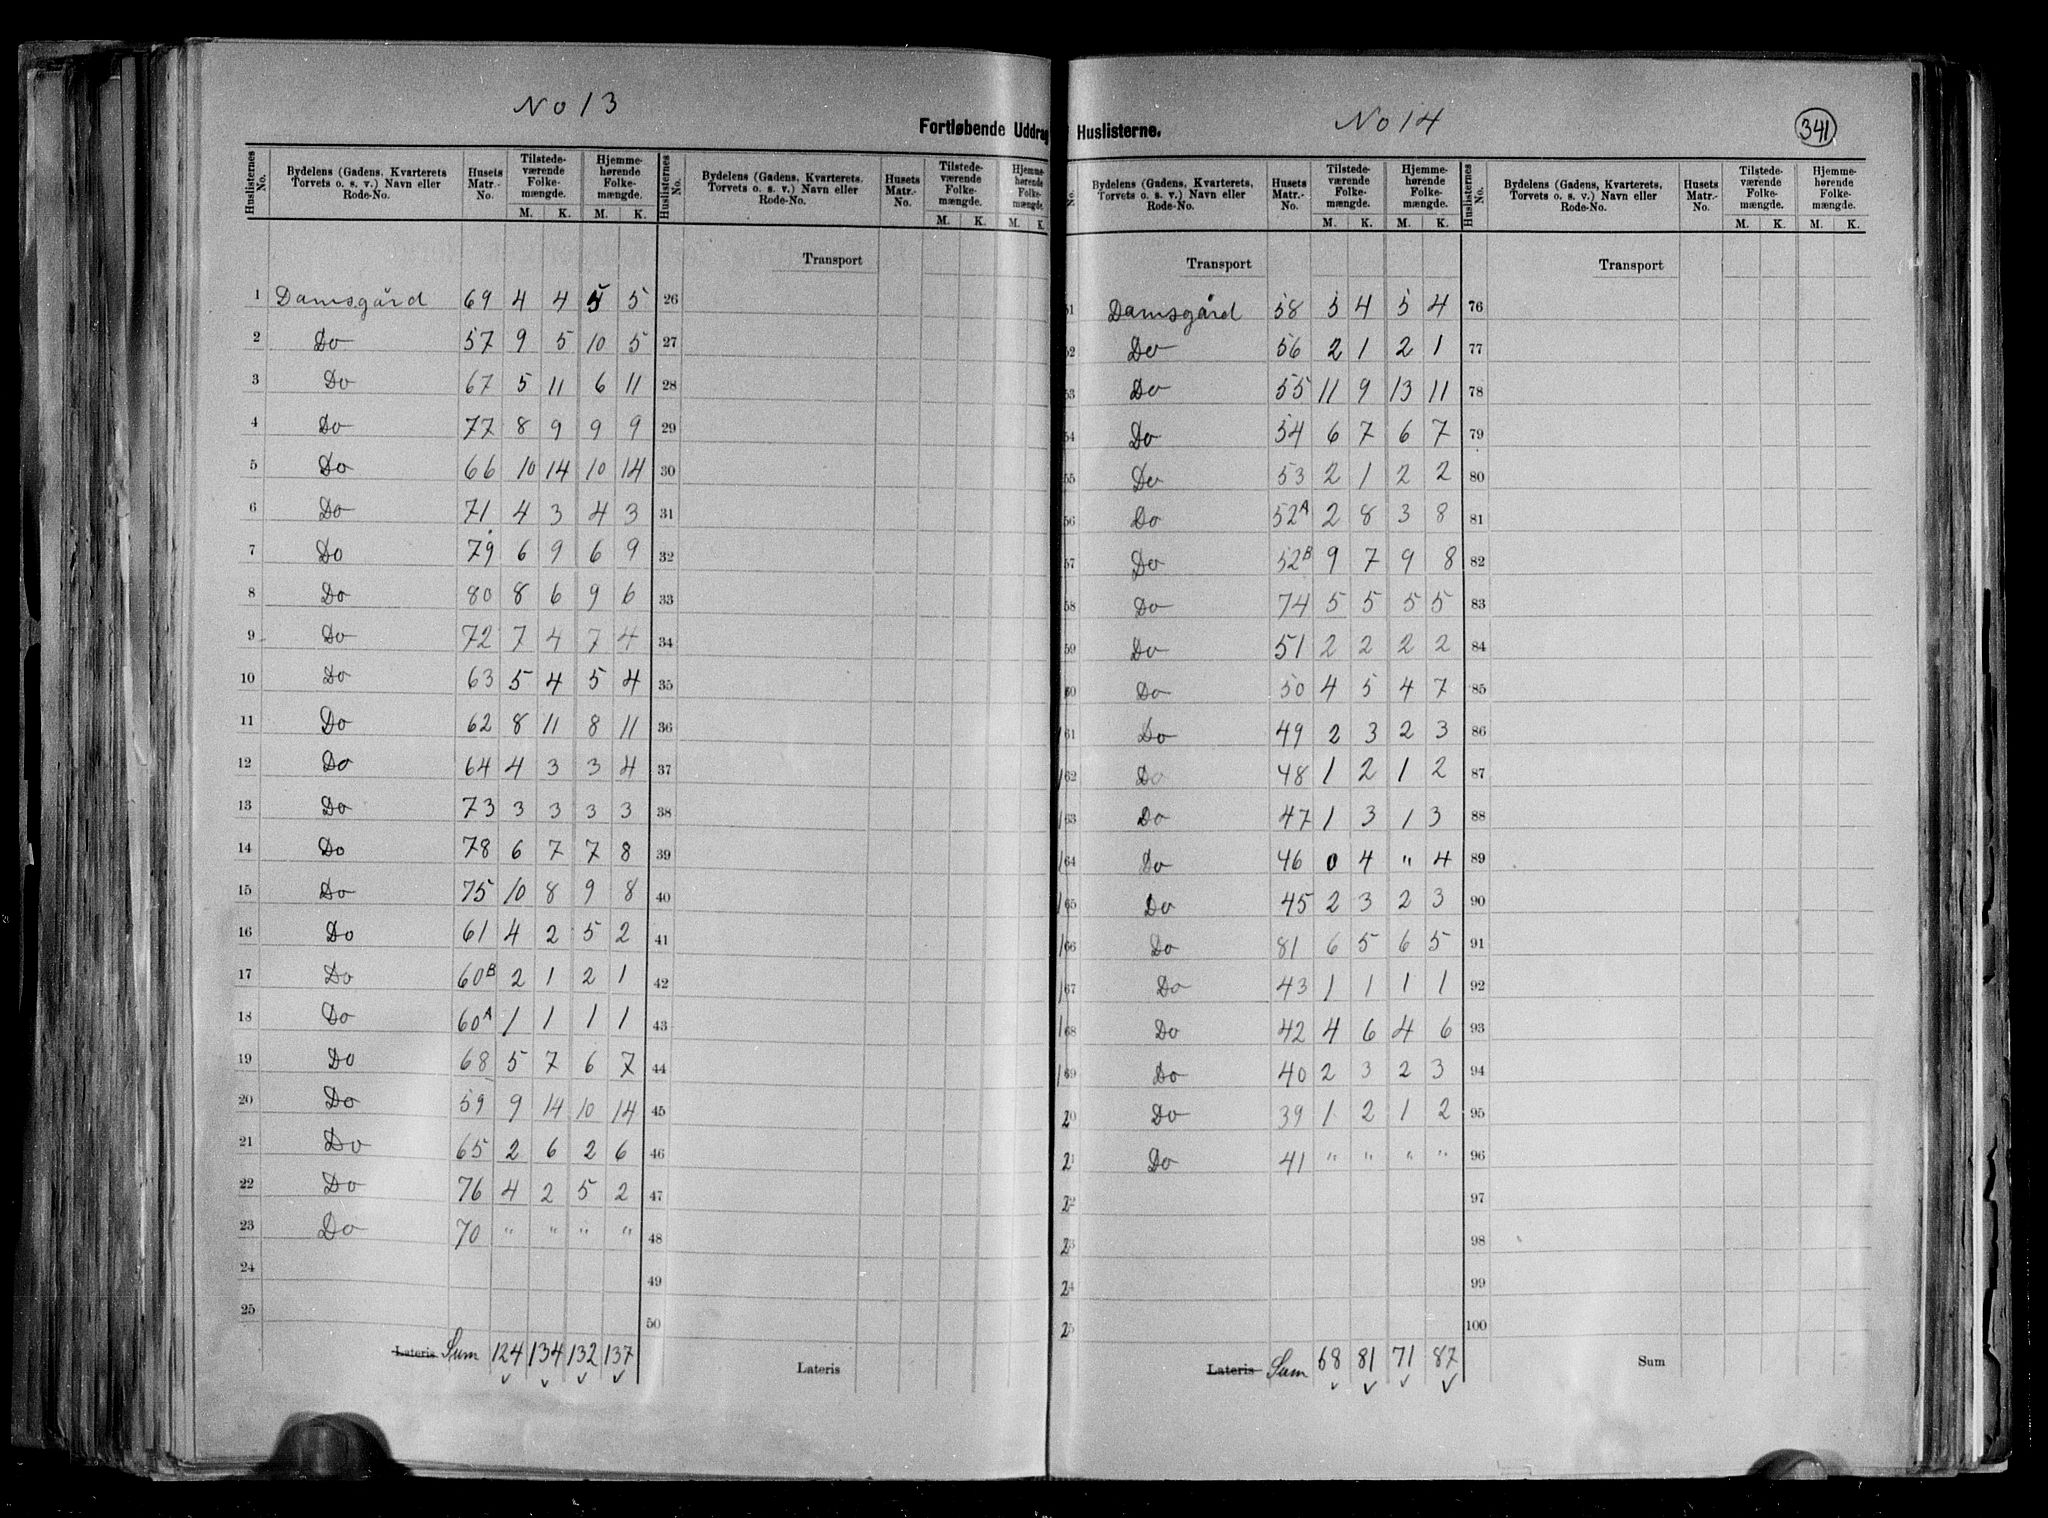 No 13
No 14
341
Fortløbende Uddrag
Huslisterne.
Huslisternes No. | Bydelens (Gadens, Kvarterets Torvets o. s. v.) Navn eller Rode-No. | Husets Matr.-No. | Tilstedeværende Folkemængde. M. K. | Hjemmehørende Folkemængde. M. K.
1 Damsgård 69 4 4 5 5
2 Do 57 9 5 10 5
3 Do 67 5 11 6 11
4 Do 77 8 9 9 9
5 Do 66 10 14 10 14
6 Do 71 4 3 4 3
7 Do 79 6 9 6 9
8 Do 80 8 6 9 6
9 Do 72 7 4 7 4
10 Do 63 5 4 5 4
11 Do 62 8 11 8 11
12 Do 64 4 3 3 4
13 Do 73 3 3 3 3
14 Do 78 6 7 7 8
15 Do 75 10 8 9 8
16 Do 61 4 2 5 2
17 Do 60B 2 1 2 1
18 Do 60A 1 1 1 1
19 Do 68 5 7 6 7
20 Do 59 9 14 10 14
21 Do 65 2 6 2 6
22 Do 76 4 2 5 2
23 Do 70 " " " "
24
25
Lateris Sum 124 134 132 137
Huslisternes No. | Bydelens (Gadens, Kvarterets, Torvets o. s. v.) Navn eller Rode-No. | Husets Matr.-No. | Tilstedeværende Folkemængde. M. K. | Hjemmehørende Folkemængde. M. K.
Transport
26
27
28
29
30
31
32
33
34
35
36
37
38
39
40
41
42
43
44
45
46
47
48
49
50
Lateris
No. | Bydelens (Gadens, Kvarterets, Torvets o. s. v.) Navn eller Rode-No. | Husets Matr.-No. | Tilstedeværende Folkemængde. M. K. | Hjemmehørende Folkemængde. M. K.
Transport
51 Damsgård 58 5 4 5 4
52 Do 56 2 1 2 1
53 Do 55 11 9 13 11
54 Do 54 6 7 6 7
55 Do 53 2 1 2 2
56 Do 52A 2 8 3 8
57 Do 52B 9 7 9 8
58 Do 74 5 5 5 5
59 Do 51 2 2 2 2
60 Do 50 4 5 4 7
61 Do 49 2 3 2 3
62 Do 48 1 2 1 2
63 Do 47 1 3 1 3
64 Do 46 0 4 " 4
65 Do 45 2 3 2 3
66 Do 81 6 5 6 5
67 Do 43 1 1 1 1
68 Do 42 4 6 4 6
69 Do 40 2 3 2 3
20 Do 39 1 2 1 2
21 Do 41 " " " "
22
23
24
25
Lateris Sum 68 81 71 87
Huslisternes No. | Bydelens (Gadens, Kvarterets, Torvets o. s. v.) Navn eller Rode-No. | Husets Matr.-No. | Tilstedeværende Folkemængde. M. K. | Hjemmehørende Folkemængde. M. K.
Transport
76
77
78
79
80
81
82
83
84
85
86
87
88
89
90
91
92
93
94
95
96
97
98
99
100
Sum